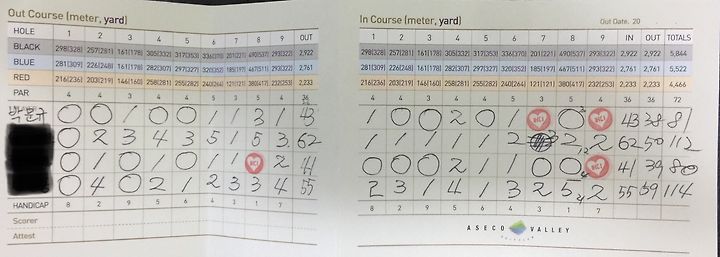 Out Course (meter, yard)
HOLE 1 2 3 4 5 6 7 8 9 OUT
BLACK 298(328) 257(281) 161(178) 305(332) 317(353) 336(370) 201(221) 490(537) 293(322) 2,922
BLUE 281(309) 226(248) 161(178) 282(307) 297(327) 320(352) 185(197) 467(511) 293(322) 2,761
RED 216(236) 203(219) 146(160) 258(281) 255(282) 240(264) 121(121) 380(417) 232(253) 2,233
PAR 4 4 3 4 4 4 3 5 4 36
0 0 1 0 0 1 1 3 1 43
0 2 3 4 3 5 1 5 3 62
0 1 0 1 0 1 1 2 41
0 4 0 2 1 2 3 3 4 55
HANDICAP 8 2 9 6 5 4 3 1 7
Scorer
Attest
In Course (meter, yard) Out Date. 20
1 2 3 4 5 6 7 8 9 IN OUT TOTALS
298(328) 257(281) 161(178) 305(332) 317(353) 336(370) 201(221) 490(537) 293(322) 2,922 2,922 5,844
281(309) 226(248) 161(178) 282(307) 297(327) 320(352) 185(197) 467(511) 293(322) 2,761 2,761 5,522
216(236) 203(219) 146(160) 258(281) 255(282) 240(264) 121(121) 380(417) 232(253) 2,233 2,233 4,466
4 4 3 4 4 4 3 5 4 36 36 72
1 0 0 2 0 1 0 43 38 81
1 1 1 1 1 2 2 2 62 50 112
0 0 0 2 1 1 0 0 41 39 80
2 3 1 4 1 3 2 5 2 55 59 114
8 2 9 6 5 4 3 1 7
ASECO VALLEY